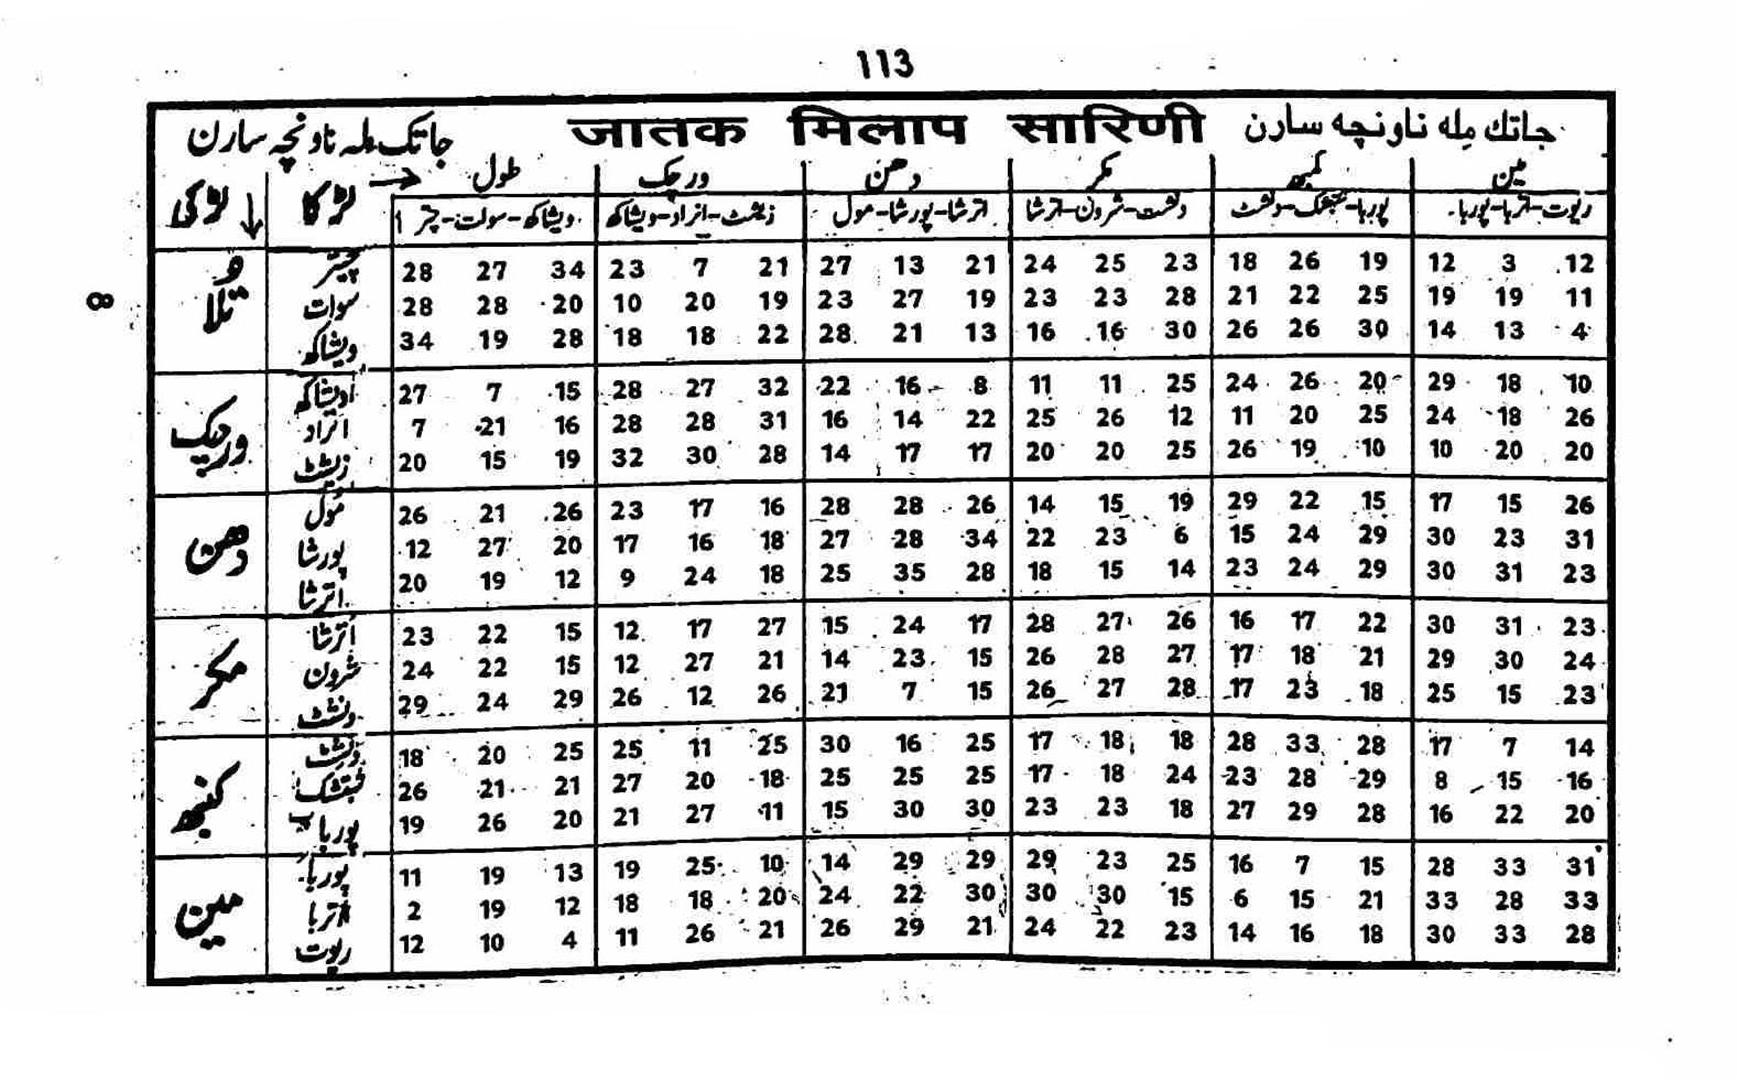 113
جاتك مِله ناونچه سارن जातक मिलाप सारिणी جاتک مله ناونچہ سارن
لڑکی ↓ لڑکا → طول ورچک دھن مکر کمبھ مین
چتر ا-سوات-ویشاکھ ویشاکھ-انراد-زیشٹ مول-پورشا-اترشا اترشا-شرون-دنشٹ پوربا-اتربا-ریوت
تلا
چتر 28 27 34 23 7 21 27 13 21 24 25 23 18 26 19 12 3 12
8 سوات 28 28 20 10 20 19 23 27 19 23 23 28 21 22 25 19 19 11
ویشاکھ 34 19 28 18 18 22 28 21 13 16 16 30 26 26 30 14 13 4
ورچک
ویشاکھ 27 7 15 28 27 32 22 16 8 11 11 25 24 26 20 29 18 10
انراد 7 21 16 28 28 31 16 14 22 25 26 12 11 20 25 24 18 26
زیشٹ 20 15 19 32 30 28 14 17 17 20 20 25 26 19 10 10 20 20
دھن
مول 26 21 26 23 17 16 28 28 26 14 15 19 29 22 15 17 15 26
پورشا 12 27 20 17 16 18 27 28 34 22 23 6 15 24 29 30 23 31
اترشا 20 19 12 9 24 18 25 35 28 18 15 14 23 24 29 30 31 23
مکر
اترشا 23 22 15 12 17 27 15 24 17 28 27 26 16 17 22 30 31 23
شرون 24 22 15 12 27 21 14 23 15 26 28 27 17 18 21 29 30 24
دنشٹ 29 24 29 26 12 26 21 7 15 26 27 28 17 23 18 25 15 23
کنبھ
دنشٹ 18 20 25 25 11 25 30 16 25 17 18 18 28 33 28 17 7 14
26 21 21 27 20 18 25 25 25 17 18 24 23 28 29 8 15 16
پوربا 19 26 20 21 27 11 15 30 30 23 23 18 27 29 28 16 22 20
مین
پوربا 11 19 13 19 25 10 14 29 29 29 23 25 16 7 15 28 33 31
اتربا 2 19 12 18 18 20 24 22 30 30 30 15 6 15 21 33 28 33
ریوت 12 10 4 11 26 21 26 29 21 24 22 23 14 16 18 30 33 28